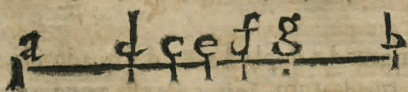 a d c e f g b